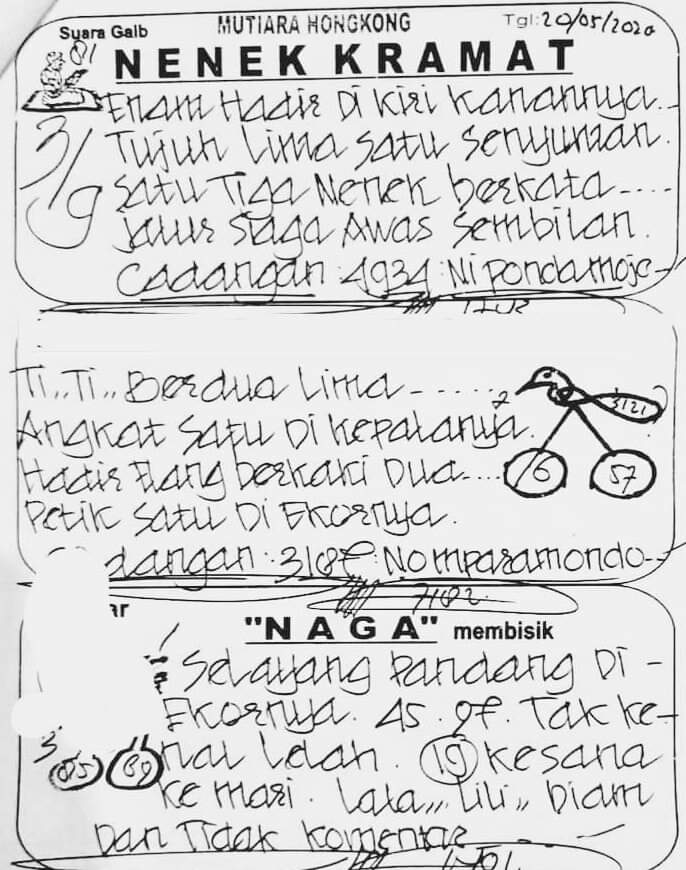 Suara Gaib
MUTIARA HONGKONG
Tgl: 20/05/2020
81
NENEK KRAMAT
3/9
Enam Hadir Di kiri kanannya..
Tujuh Lima Satu Senyuman.
Satu Tiga Nenek berkata....
Jalur Siaga Awas Sembilan.
Cadangan : 4934 : Ni pondamojo
Ti,, Ti,, Berdua Lima ......
Angkat Satu Di kepalanya.
Hadir Elang berkaki Dua....
Petik Satu Di Ekornya.
2
3121
16
57
dangan : 318f : No mparamondo
7182
ar
"NAGA" membisik
Selayang pandang Di -
Ekornya. 45. 9f. Tak ke-
nal Lelah. 19 kesana
ke mari. Lala,,, Lili,, Diam
Dan Tidak komentar
3
85
89